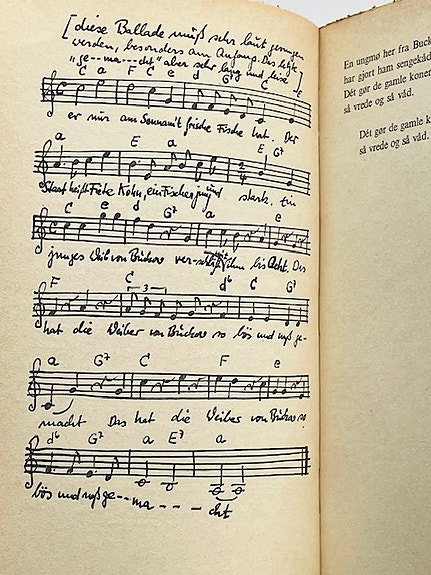 [diese Ballade muß sehr laut gesungen
werden, besonders am Anfang. Das letzte
"ge--ma--cht" aber sehr lang und leise]
C a F C e d g⁷ C E
er nur am Sonnamit frische Fische hat. Der
a E a E G⁷
Staat heißt Fiete Kohn, ein Fischer jung und stark. Ein
C e d G⁷ a e
junges Weib von Bückow ver- ihm bis Acht. Das
F C 3 d⁶ C G⁷
hat die Weiber von Bückow so bös und naß ge-
a G⁷ C F e
macht Das hat die Weiber von Bückow so
d⁶ G⁷ a E⁷ a
bös und naß ge--ma - - - cht
En ungmø her fra Buck
har gjort ham sengekåd
Dét gør de gamle koner
så vrede og så våd.
Dét gør de gamle k
så vrede og så våd.